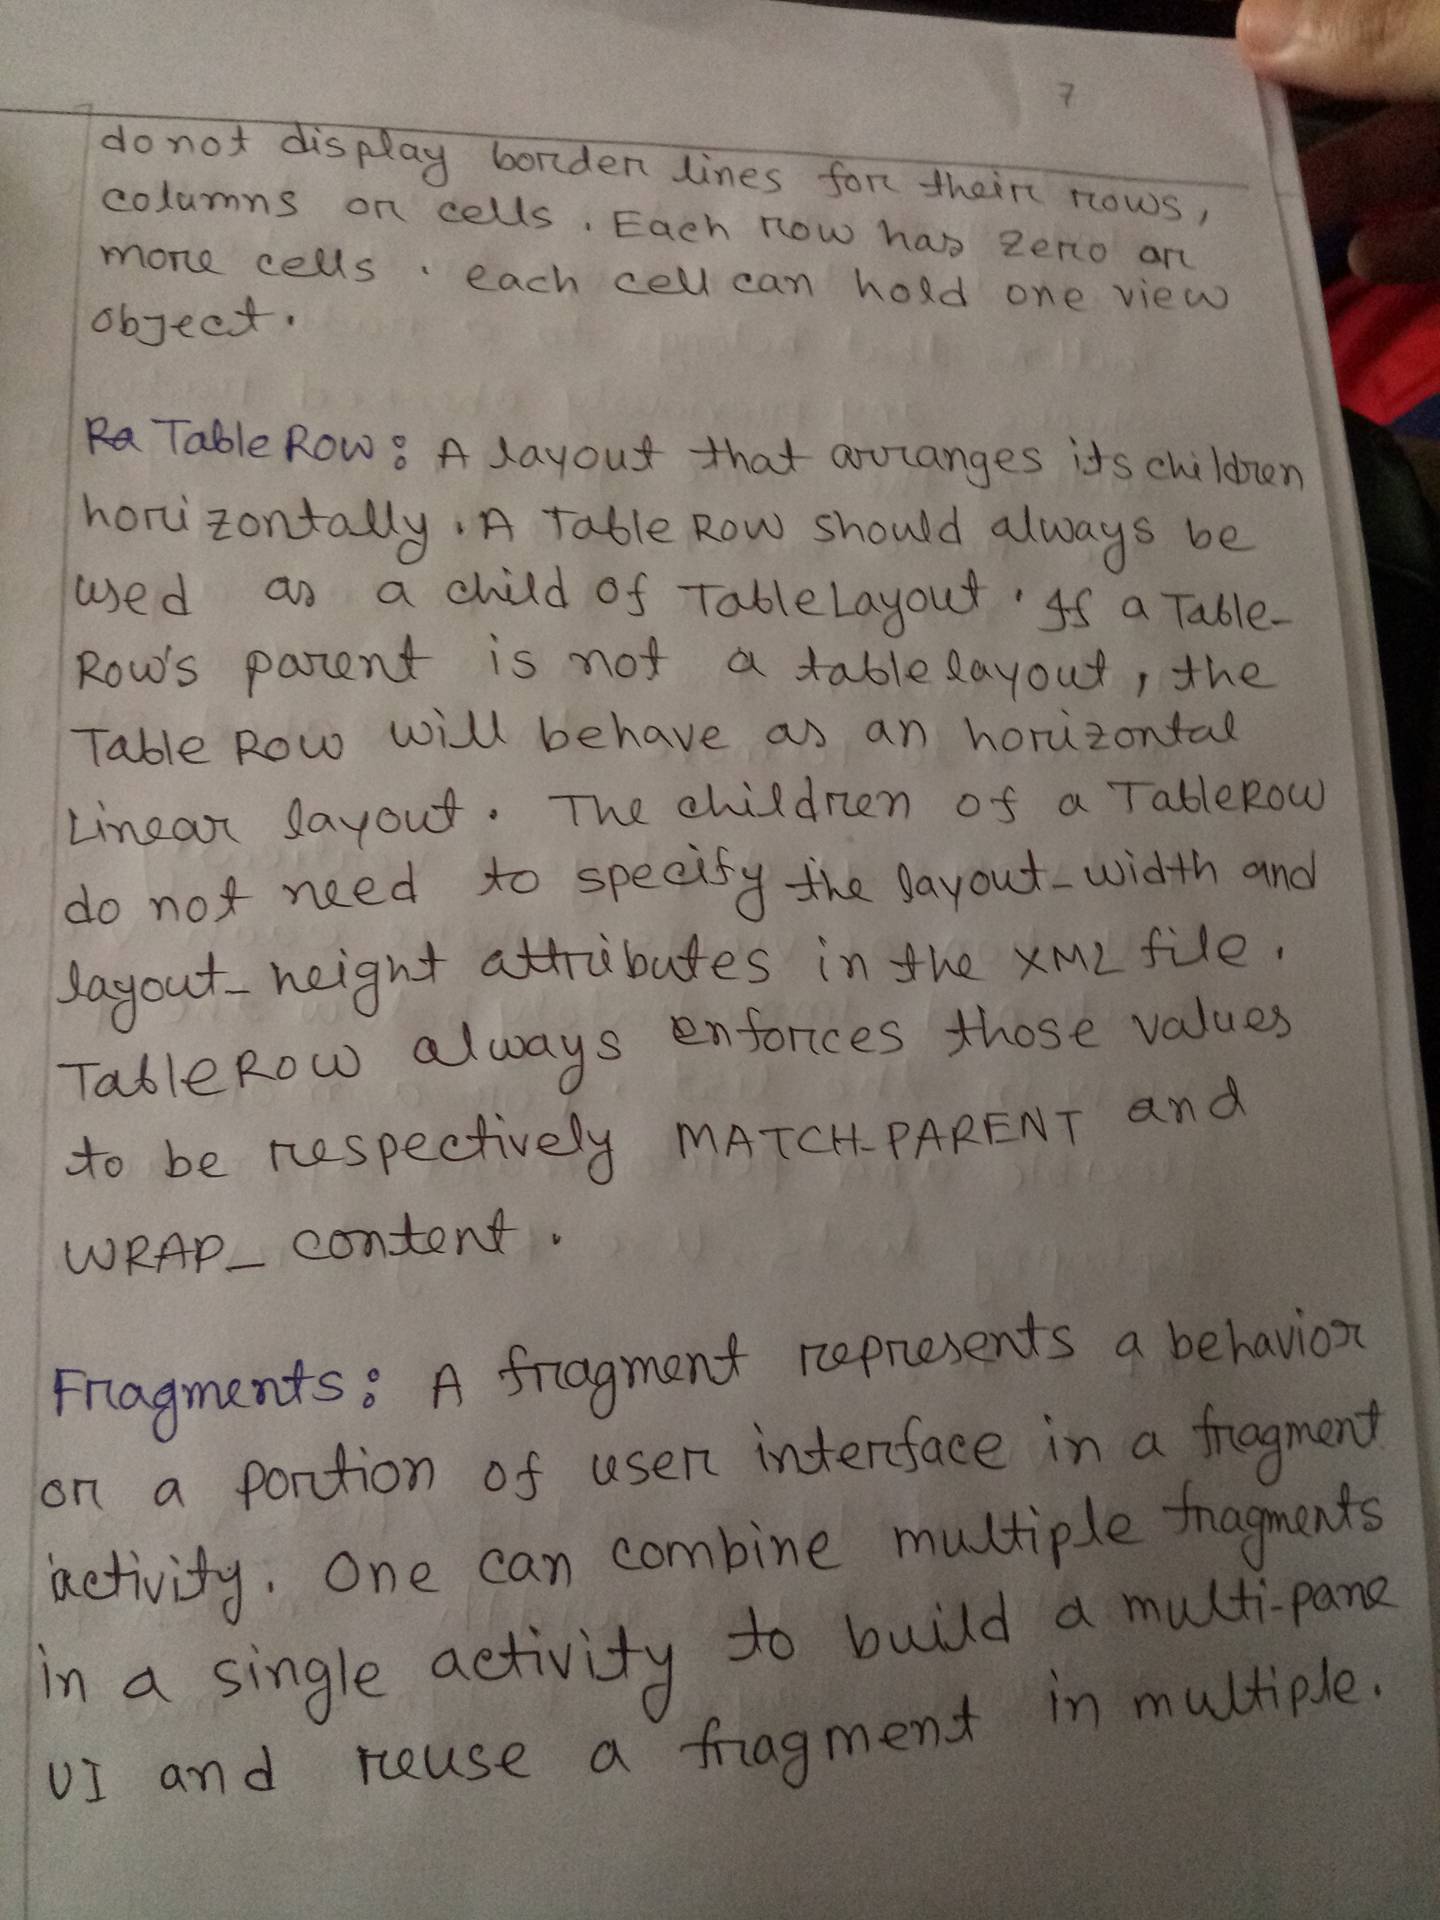 7
do not display border lines for their rows,
columns or cells. Each row has zero or
more cells. each cell can hold one view
object.
Ra Table Row: A layout that arranges its children
horizontally. A Table Row should always be
used as a child of TableLayout. If a Table-
Row's parent is not a table layout, the
Table Row will behave as an horizontal
Linear layout. The children of a TableRow
do not need to specify the layout_width and
layout_height attributes in the XML file.
TableRow always enforces those values
to be respectively MATCH_PARENT and
WRAP_content.
Fragments: A fragment represents a behavior
or a portion of user interface in a fragment
activity. One can combine multiple fragments
in a single activity to build a multi-pane
UI and reuse a fragment in multiple.